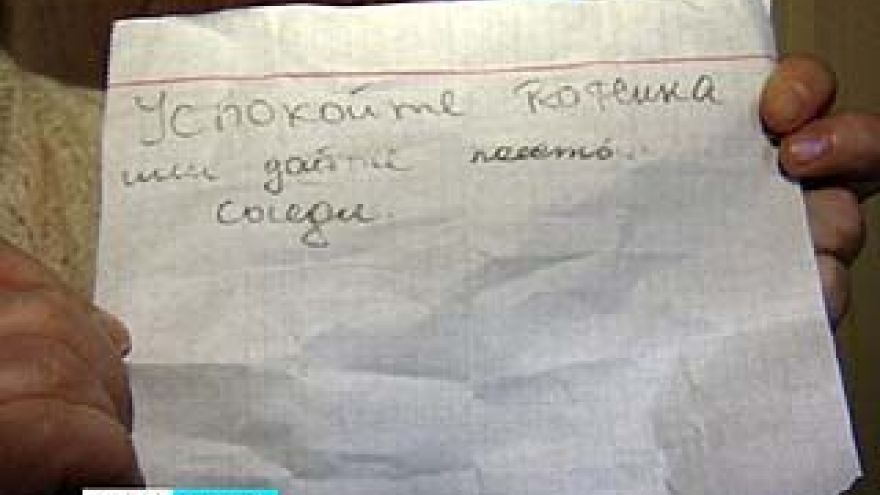 Успокойте котенка
или дайте поесть.
соседи.